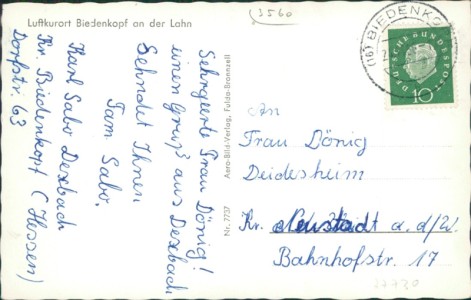 Luftkurort Biedenkopf an der Lahn
3560
(16) BIEDENKO
DEUTSCHE BUNDESPOST
10
Sehrgeerte Frau Dönig!
einen Gruß aus Dexbach
Sehndet Ihnen
Fam Sabo.
Karl Sabo Dexbach
Kr. Biedenkopf (Hessen)
Dorfstr. 63
Aero-Bild-Verlag, Fulda-Bronnzell
Nr. 7737
an
Frau Dönig
Deidesheim
Kr. Neustadt a. d/W.
Bahnhofstr. 17